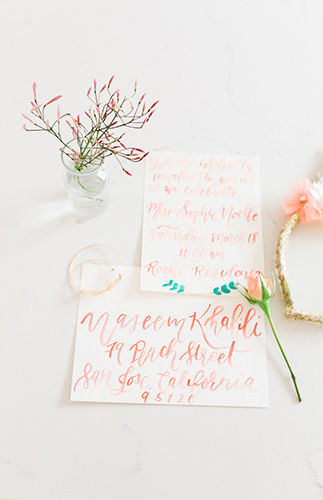 You are cordially
invited to join us
as we celebrate
Miss Sophy Noelle
Saturday, March 18
11:00 am
Roche Residence
Naseem Khalili
79 Peach Street
San Jose, California
95120